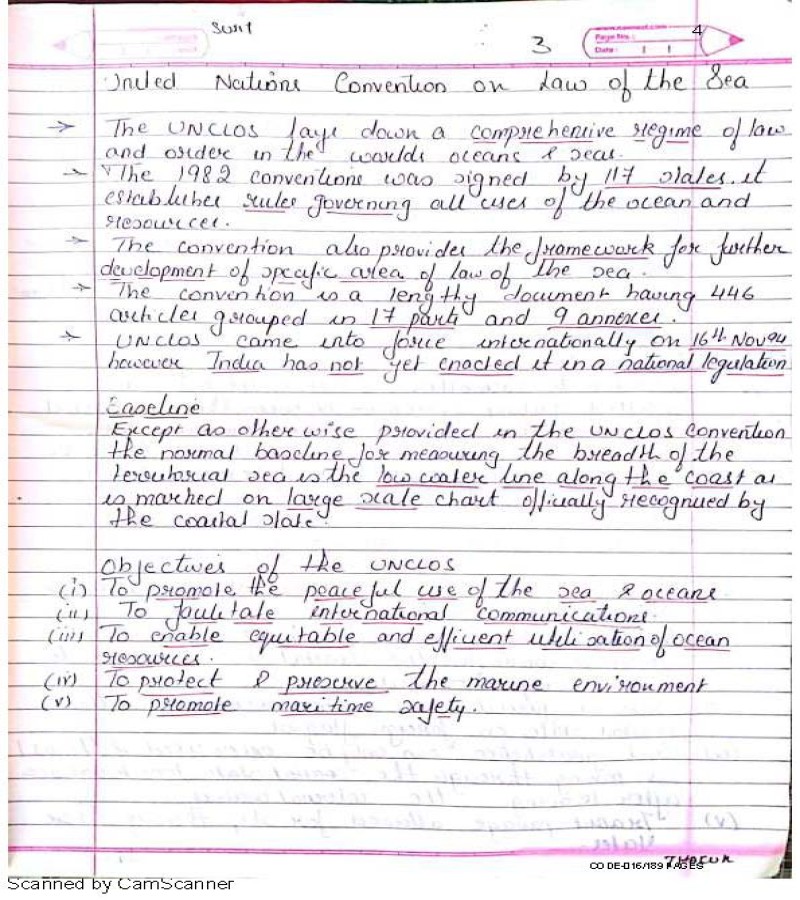 Sunit
3
4
Page No.:
Date:
United Nations Convention on Law of the Sea
→ The UNCLOS lays down a comprehensive regime of law
and order in the worlds oceans & seas.
→ The 1982 conventions was signed by 117 states. it
establishes rules governing all uses of the ocean and
resources.
→ The convention also provides the framework for further
development of specific area of law of the sea.
→ The convention is a lengthy document having 446
articles grouped in 17 parts and 9 annexes.
→ UNCLOS came into force internationally on 16th Nov 94
however India has not yet enacted it in a national legislation
Baseline
Except as otherwise provided in the UNCLOS Convention
the normal baseline for measuring the breadth of the
territorial sea is the low water line along the coast as
is marked on large scale chart officially recognized by
the coastal state.
Objectives of the UNCLOS
(i) To promote the peaceful use of the sea & oceans
(ii) To facilitate international communications.
(iii) To enable equitable and efficient utilisation of ocean
resources.
(iv) To protect & preserve the marine environment
(v) To promote maritime safety.
CODE-016/189 PAGES
Scanned by CamScanner